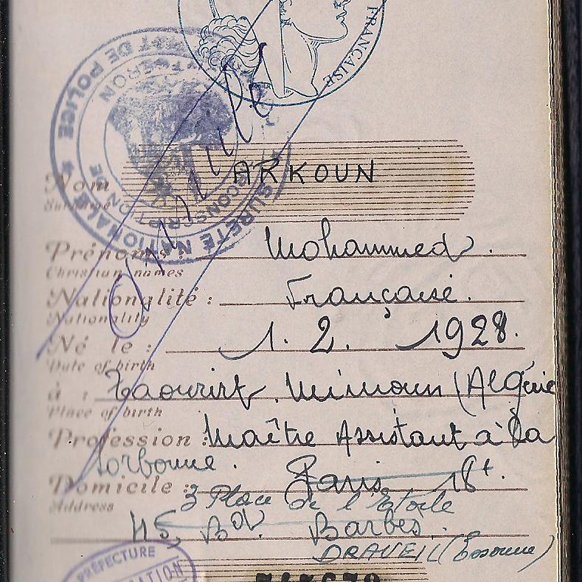 FRANÇAISE
SÛRETÉ NATIONALE DE POLICE
CIRCONSCRIPTION DE
Annulé
Nom ARKOUN
Surname
Prénoms Mohammed
Christian names
Nationalité : Française.
Nationality
Né le : 1. 2. 1928.
Date of birth
à : Taourirt. Mimoun (Algérie
Place of birth
Profession : Maître Assistant à la
Sorbonne.
Domicile : Paris 18e
Address
3 Place de l'Etoile
45 Bd Barbès
DRAVEIL (Essonne)
PRÉFECTURE